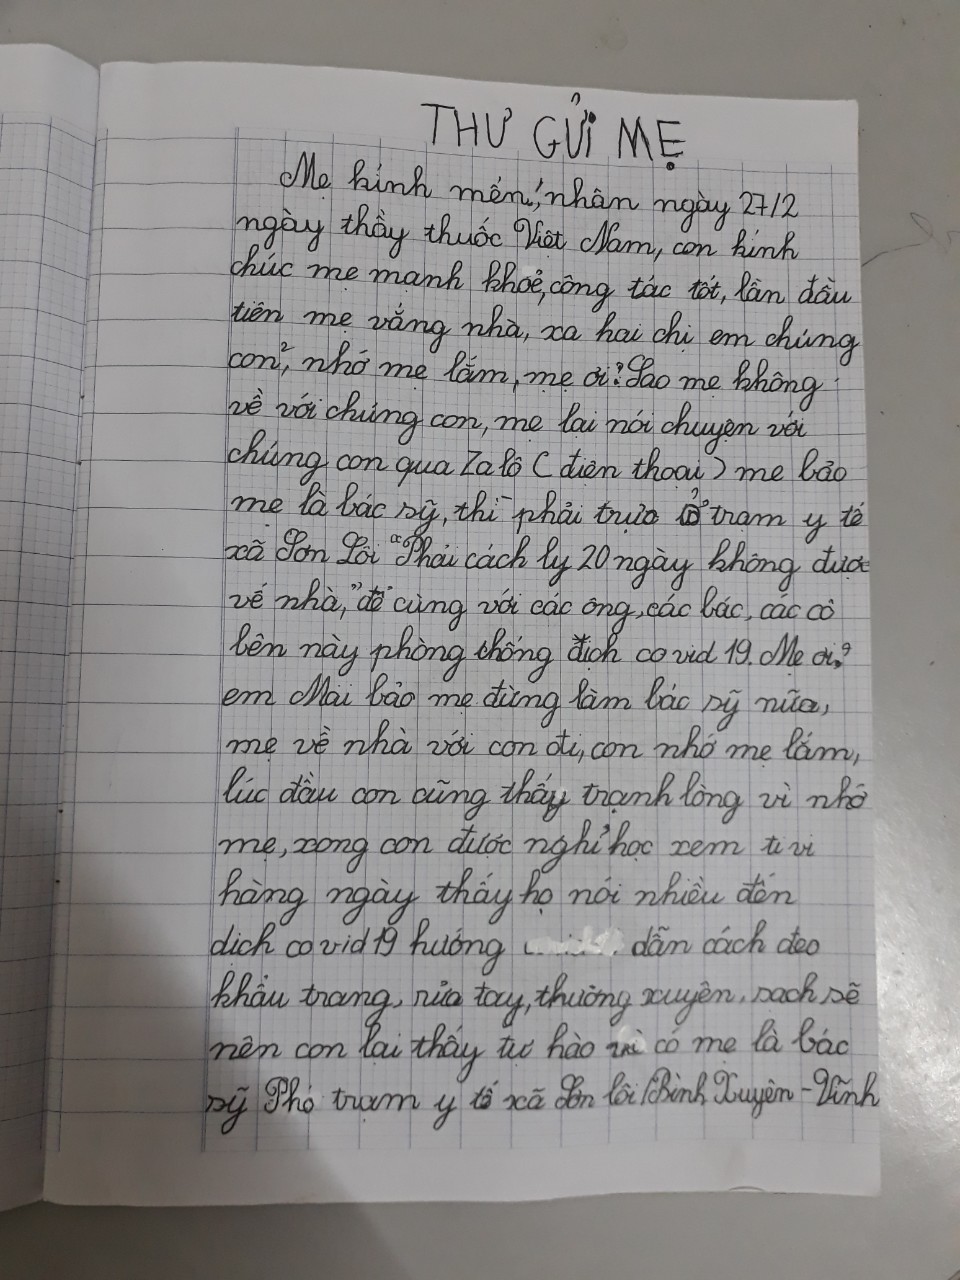 THƯ GỬI MẸ
Mẹ kính mến! nhân ngày 27/2
ngày thầy thuốc Việt Nam, con kính
chúc mẹ mạnh khoẻ, công tác tốt, lần đầu
tiên mẹ vắng nhà, xa hai chị em chúng
con², nhớ mẹ lắm, mẹ ơi? Sao mẹ không
về với chúng con, mẹ lại nói chuyện với
chúng con qua Zalô (điện thoại) mẹ bảo
mẹ là bác sỹ, thì phải trực ở trạm y tế
xã Sơn Lôi "Phải cách ly 20 ngày không được
về nhà," để cùng với các ông, các bác, các cô
bên này phòng chống dịch covid 19. Mẹ ơi?
em Mai bảo mẹ đừng làm bác sỹ nữa,
mẹ về nhà với con đi, con nhớ mẹ lắm,
lúc đầu con cũng thấy trạnh lòng vì nhớ
mẹ, xong con được nghỉ học xem ti vi
hàng ngày thấy họ nói nhiều đến
dịch covid19 hướng dẫn cách đeo
khẩu trang, rửa tay, thường xuyên, sạch sẽ
nên con lại thấy tự hào vì có mẹ là bác
sỹ Phó trạm y tế xã Sơn lôi/Bình Xuyên - Vĩnh